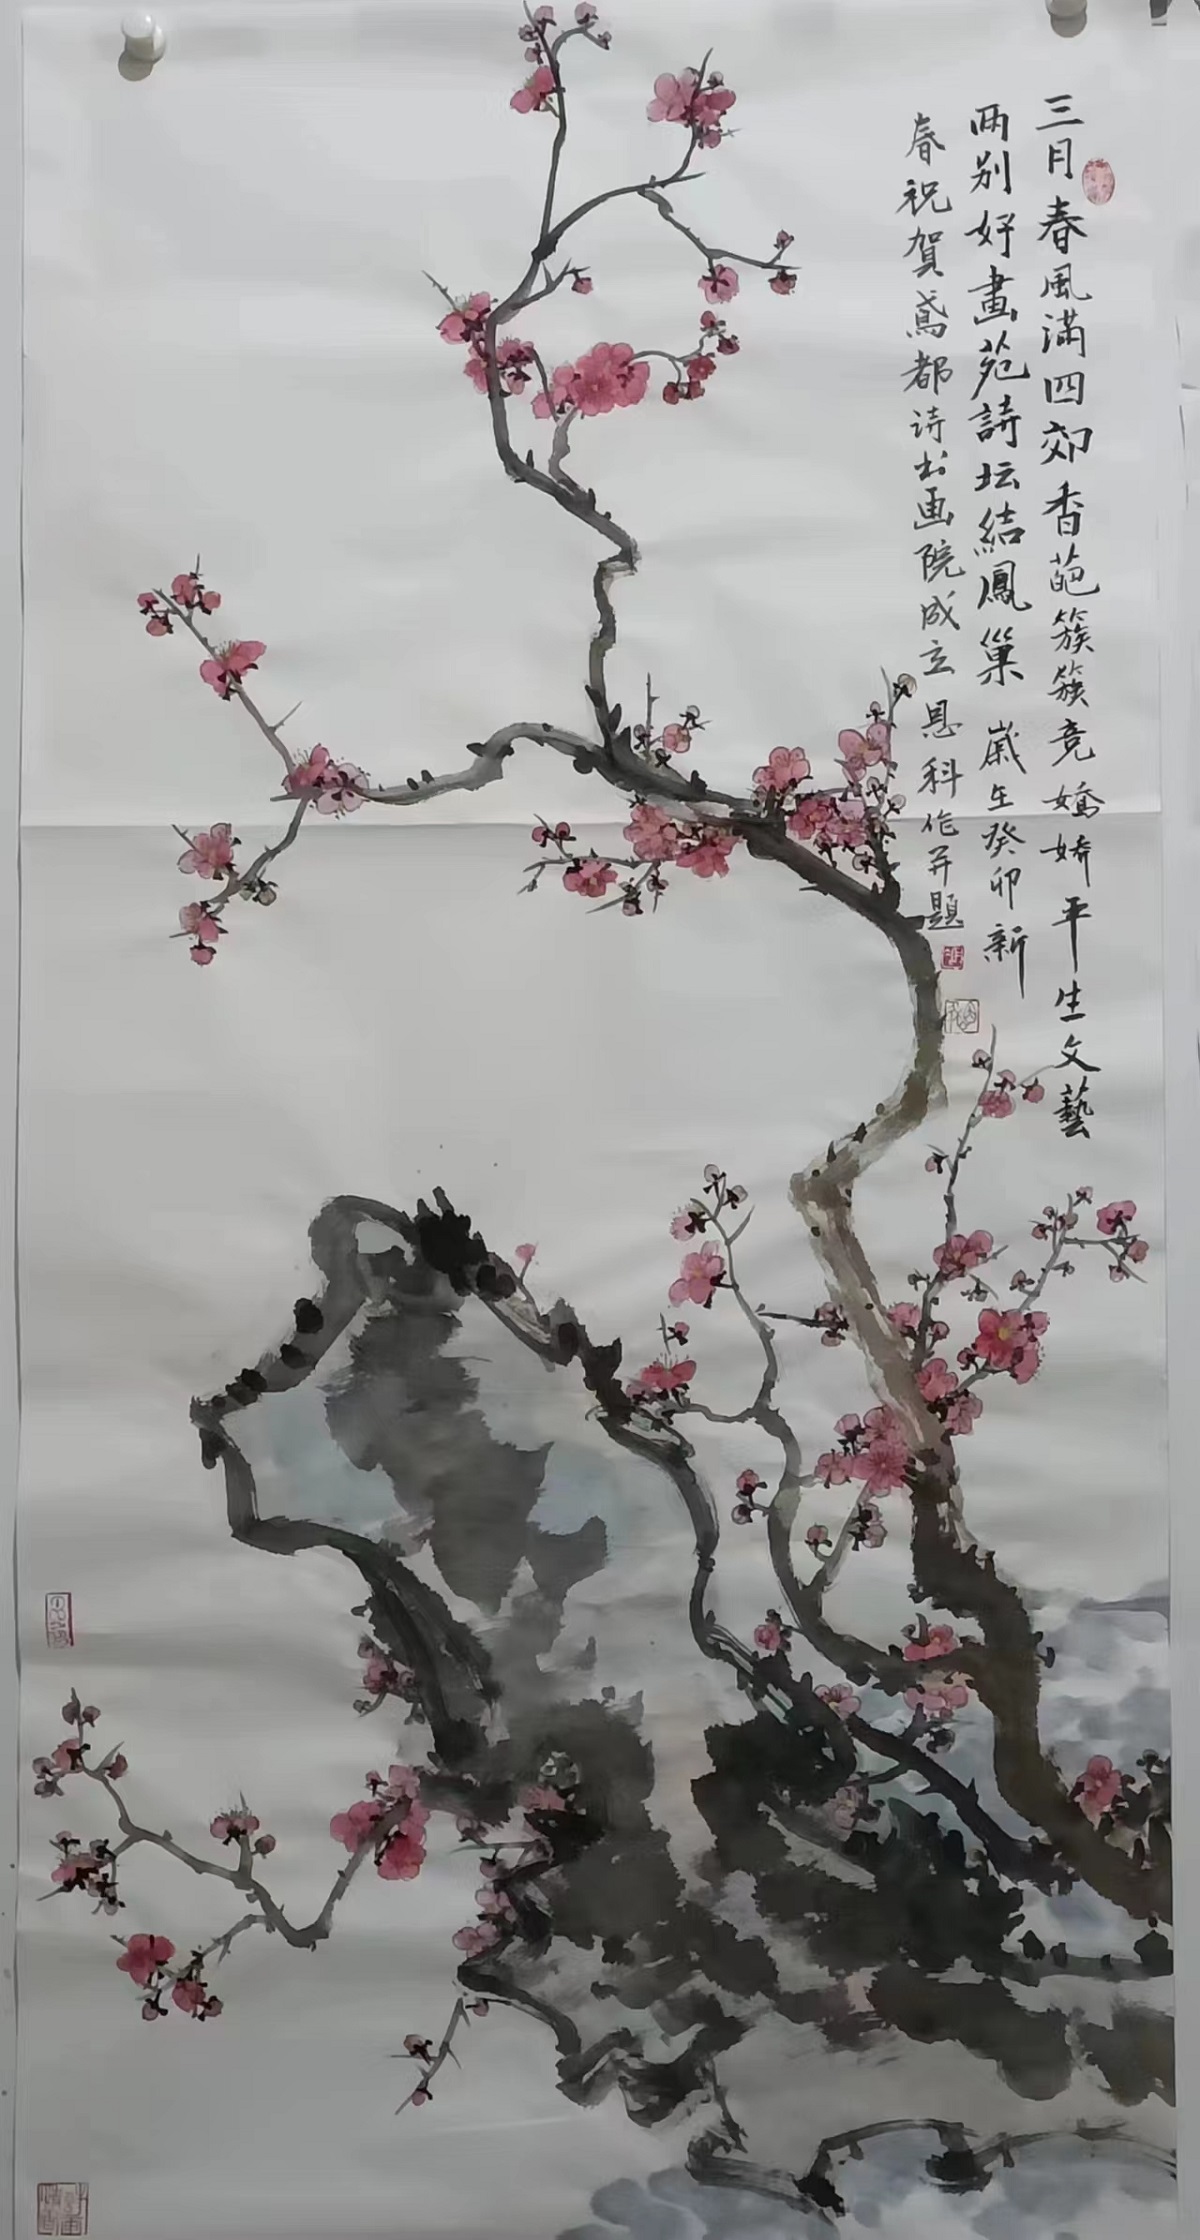 三月春風满四郊香葩簇簇竞嬌娇平生文藝
两别好畫苑詩坛結鳳巢 歲在癸卯新
春祝贺鳶都诗书画院成立 恩科作并題